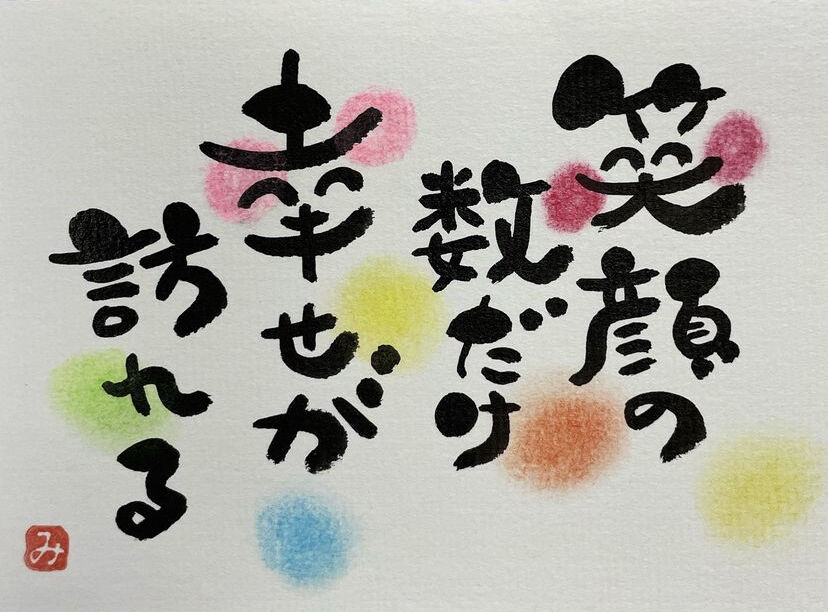 笑顔の
数だけ
幸せが
訪れる
み